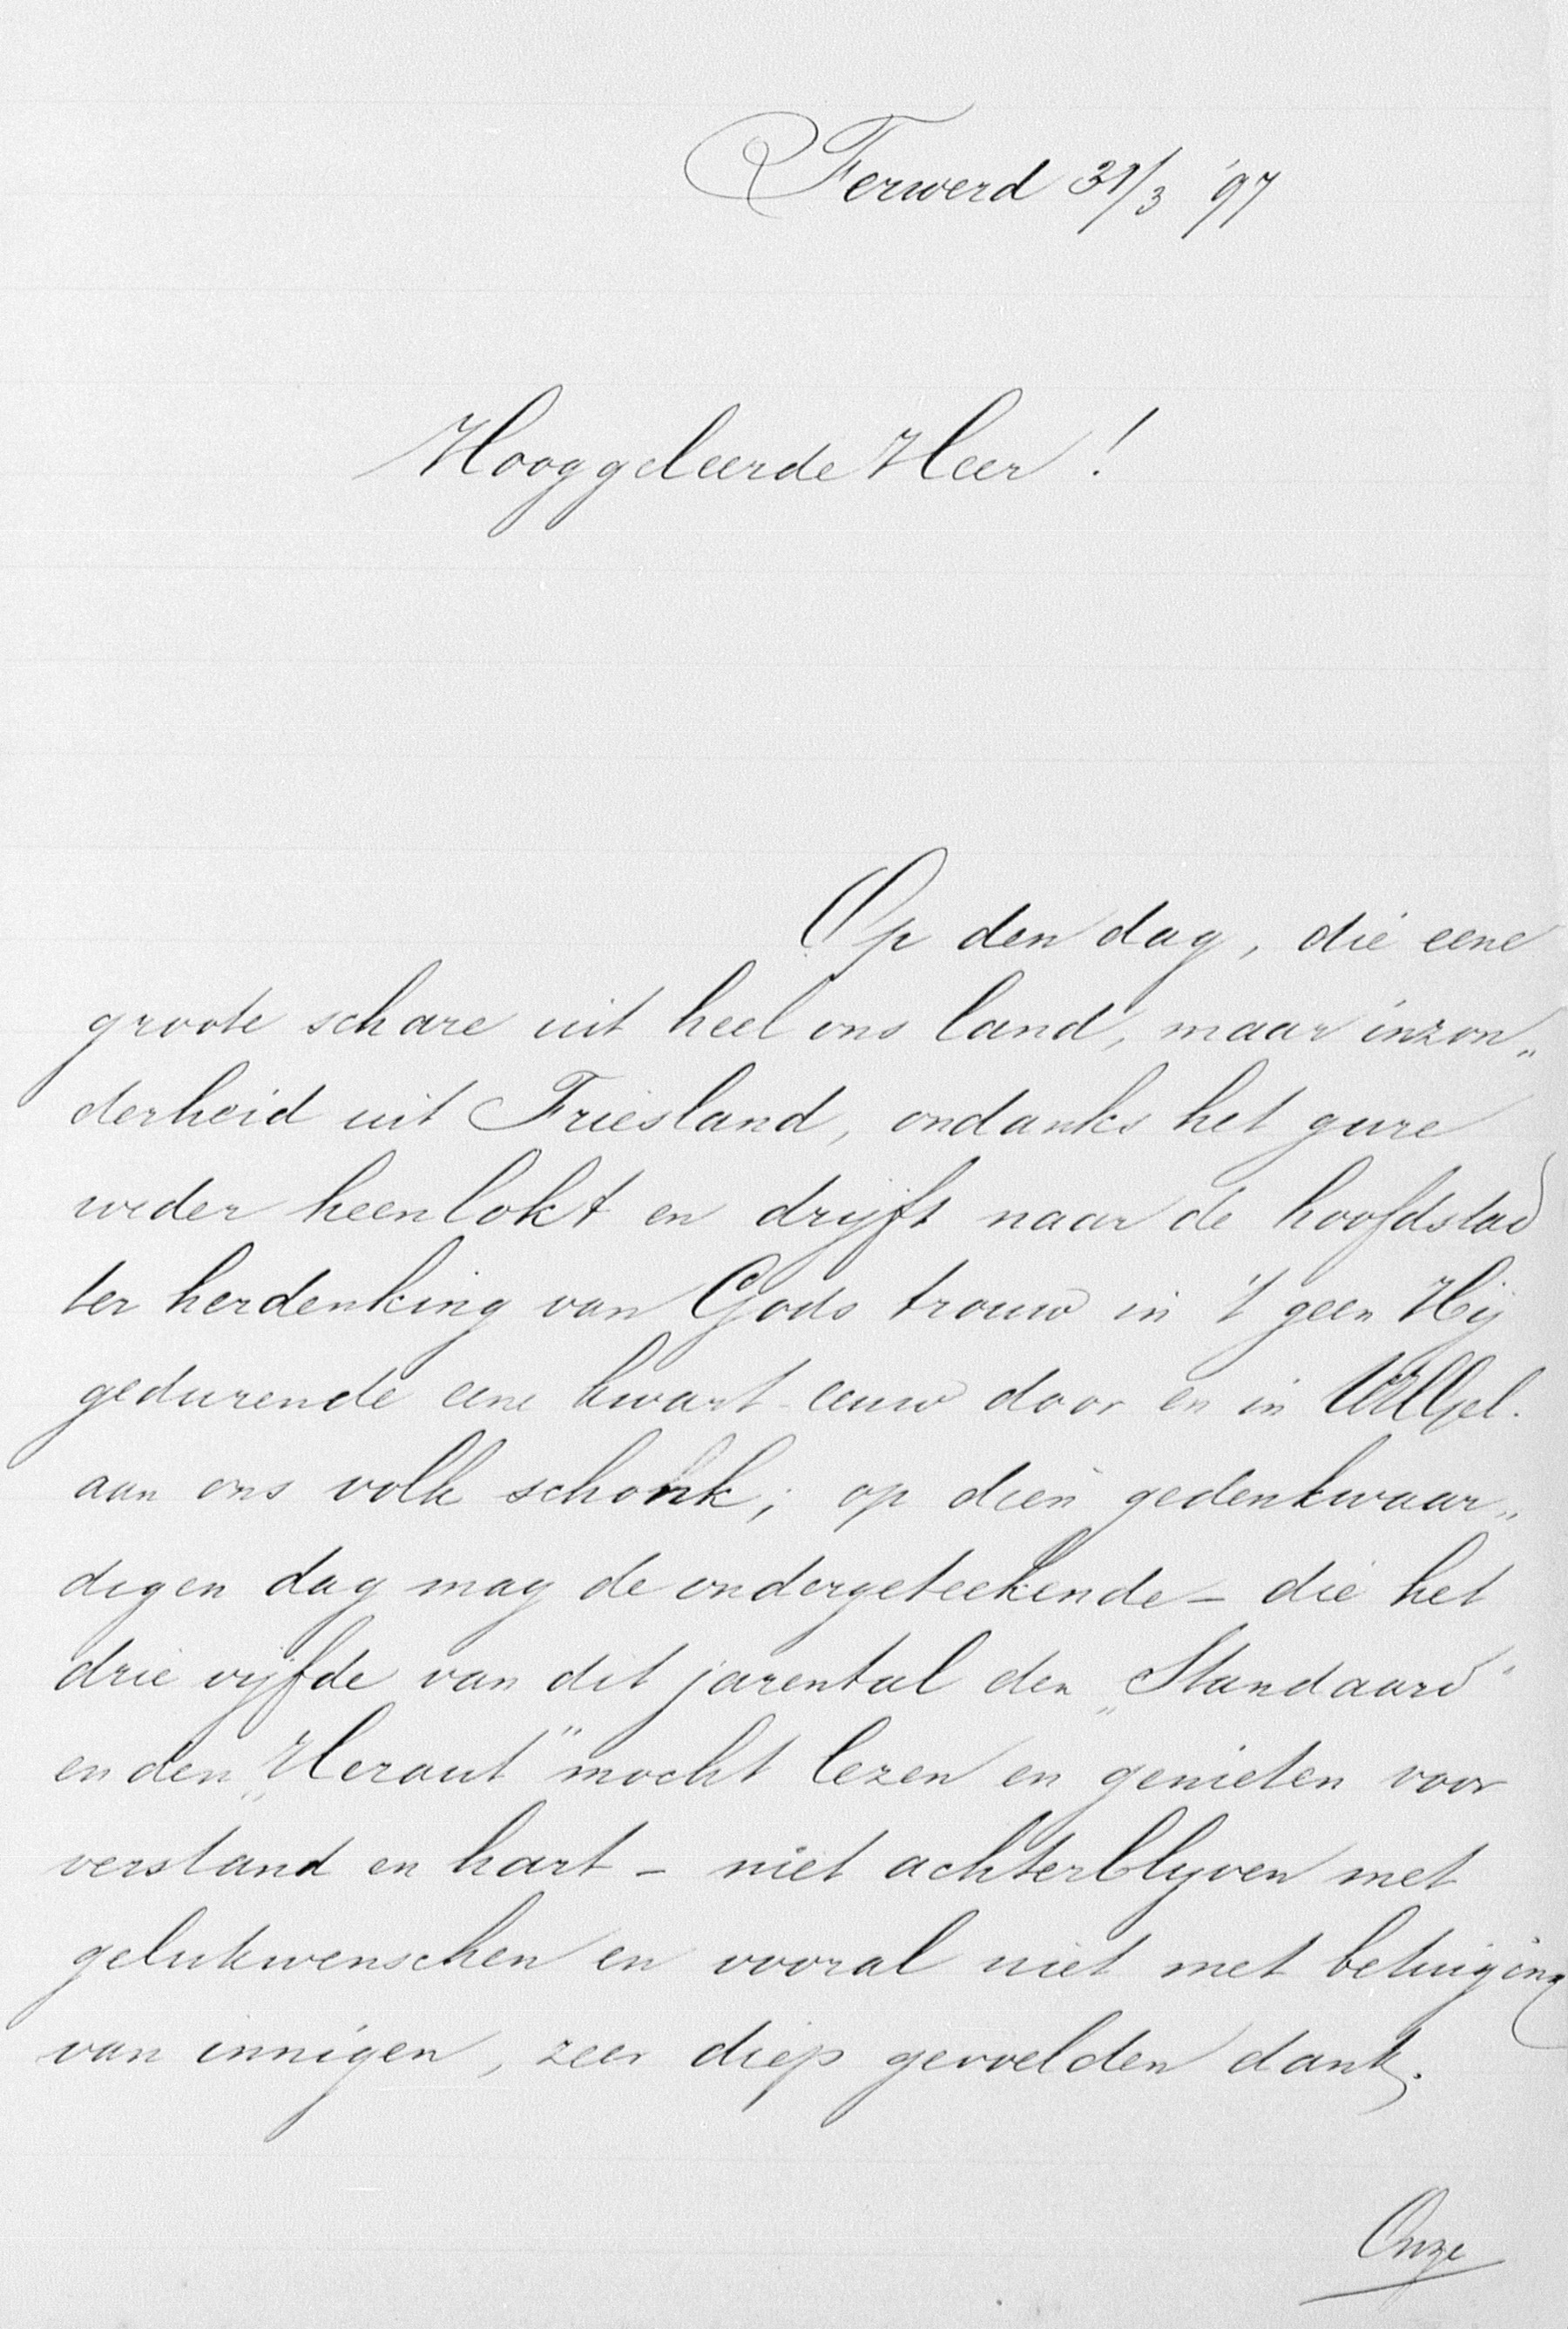 Ferwerd 31/3 '97
Hooggeleerde Heer!
Op den dag, die eene
groote schare uit heel ons land, maar inzon„
derheid uit Friesland, ondanks het gure
weder heenlokt en drijft naar de hoofdstad
ter herdenking van Gods trouw in 't geen Hij
gedurende eene kwart-eeuw door en in UHGel.
aan ons volk schonk; op dien gedenkwaar„
digen dag mag de ondergeteekende – die het
drie vijfde van dit jarental den „Standaard"
en den „Heraut" mocht lezen en genieten voor
verstand en hart – niet achterblijven met
gelukwenschen en vooral niet met betuiging
van innigen, zeer diep gevoelden dank.
Onze